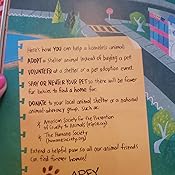 Here's how you can help a homeless animal:
ADOPT a shelter animal instead of buying a pet.
VOLUNTEER at a shelter or a pet adoption event.
SPAY OR NEUTER YOUR PET so there will be fewer
fur babies to find a home for.
DONATE to your local animal shelter or a national
animal-advocacy group, such as:
American Society for the Prevention
of Cruelty to Animals (aspca.org)
The Humane Society
(humanesociety.org)
Extend a helpful paw so all our animal friends
can find forever homes!